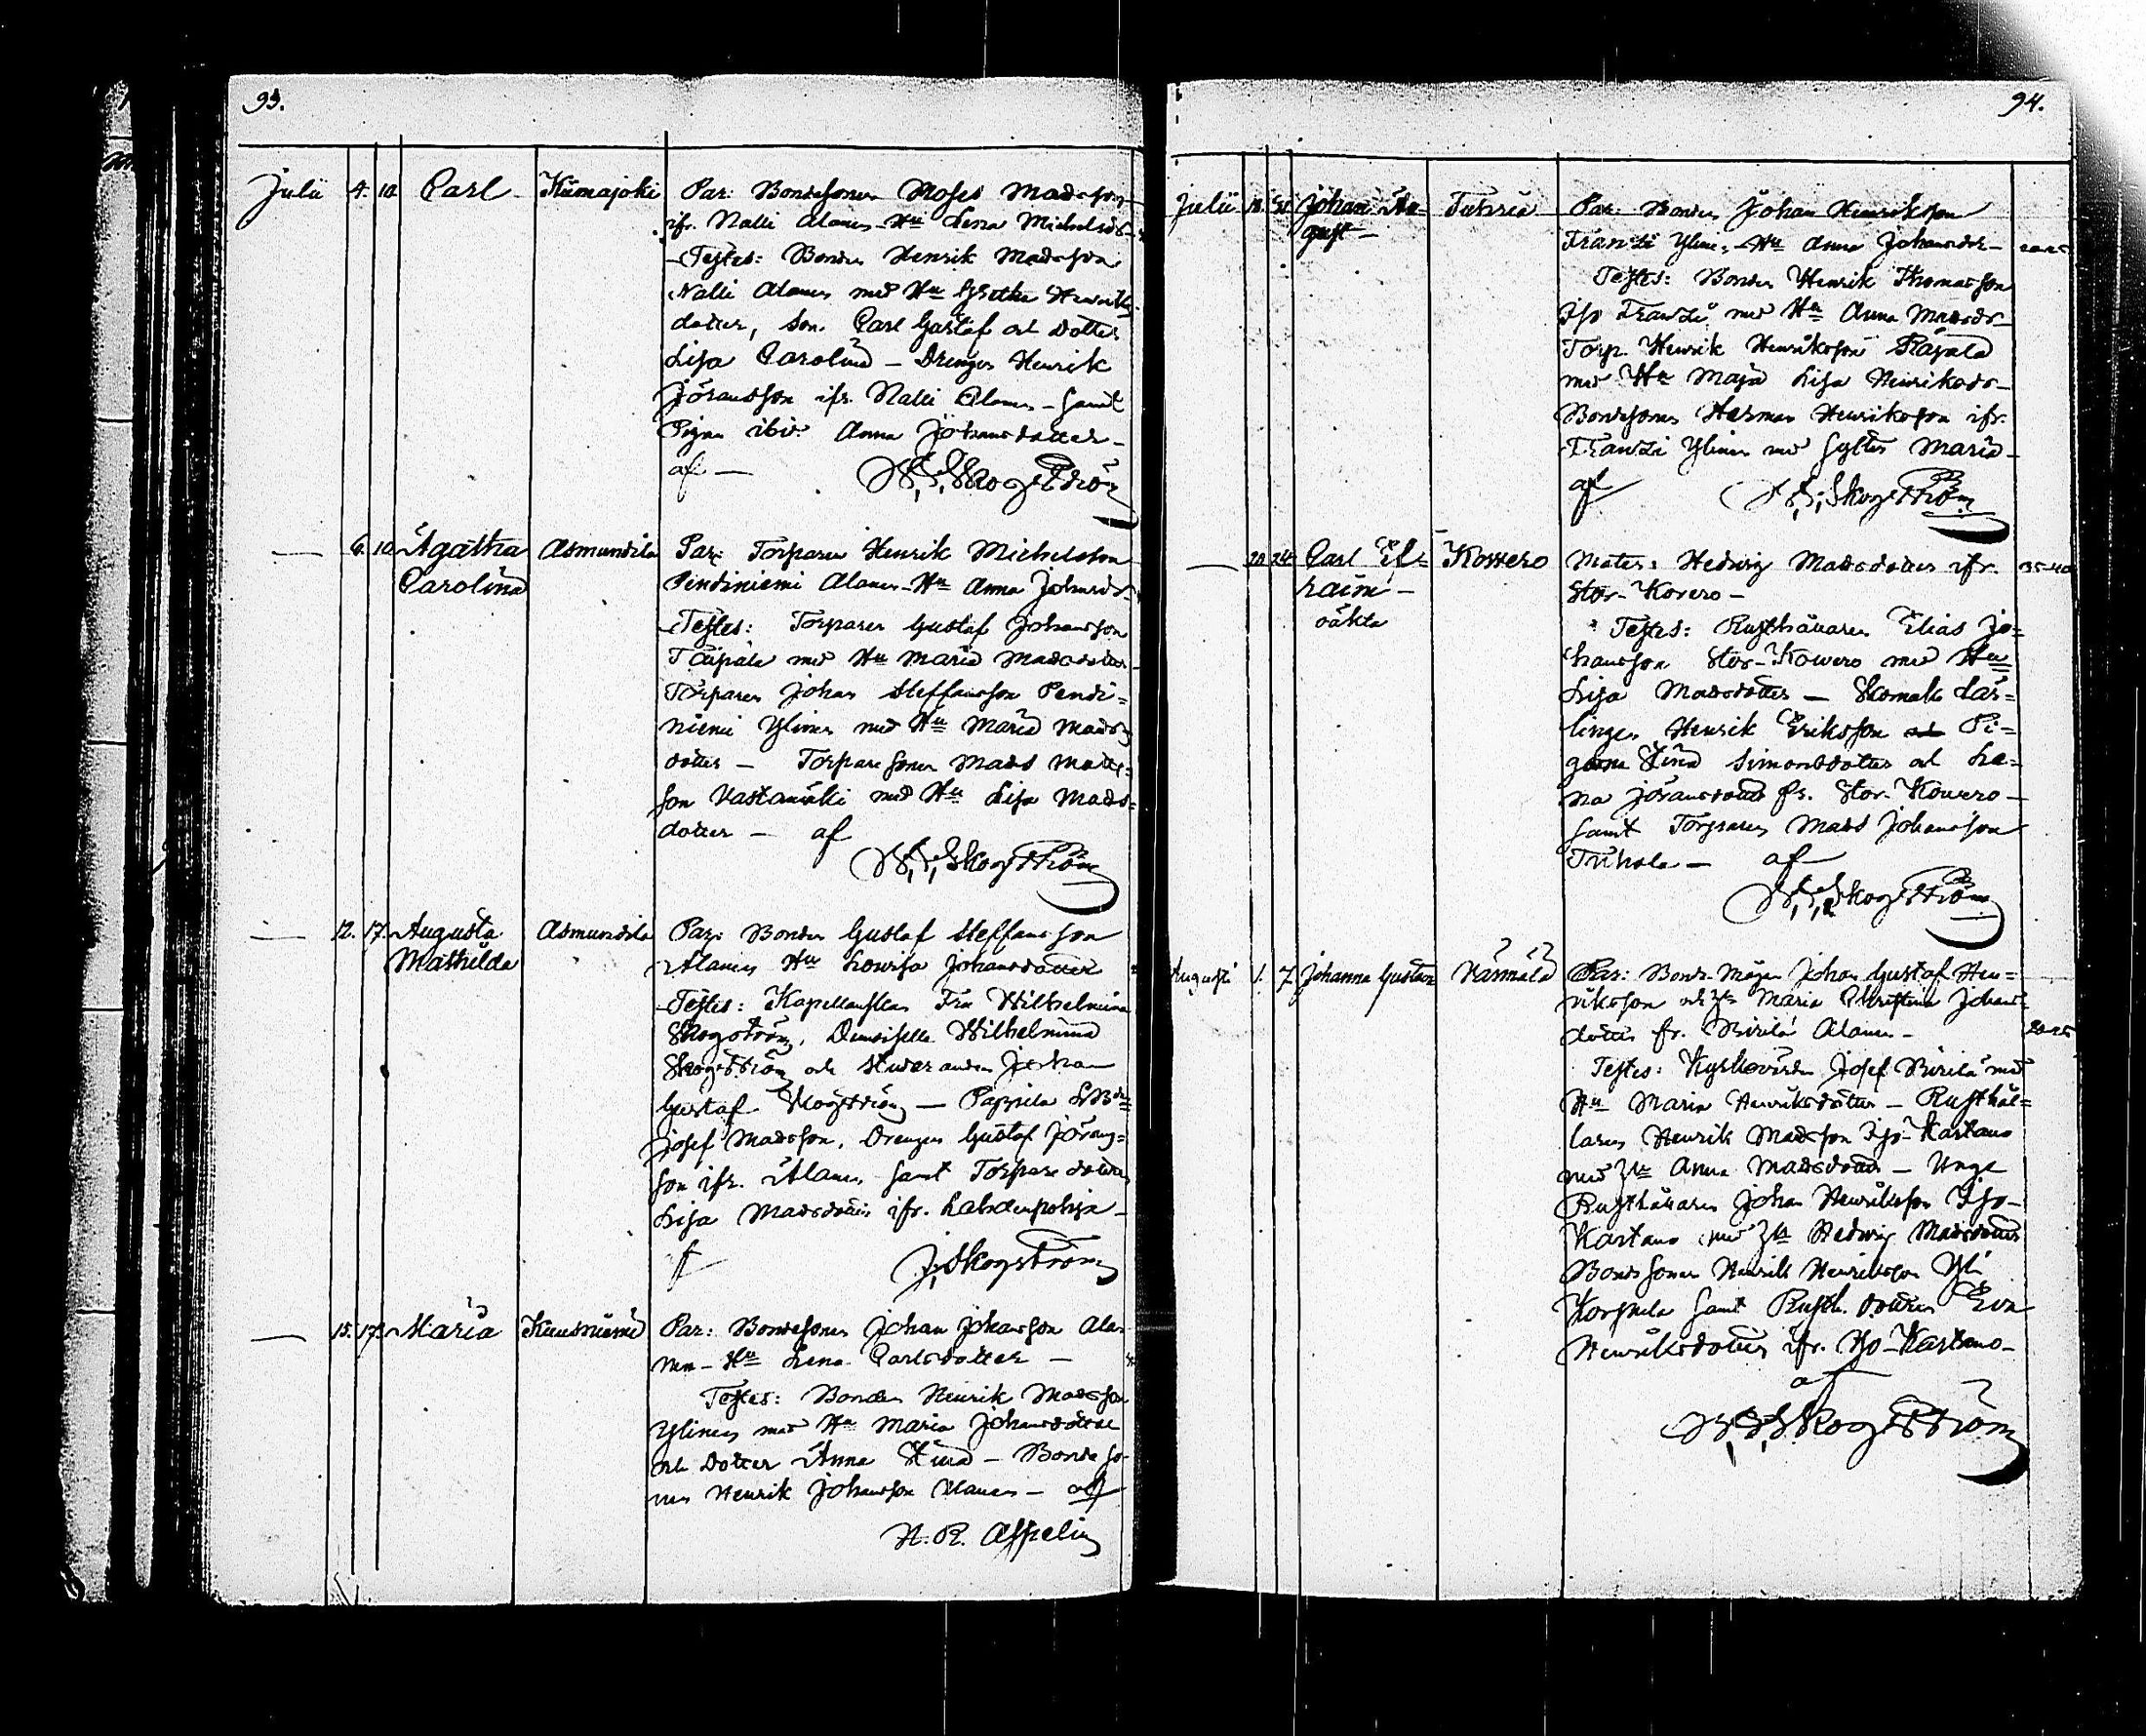 93.
Julii 4. 10. Carl Kiimajoki Par: Bondesonen Moses Madsson
ifr. Nalli Alanen Hu Lena Michelsdr
Testes: Bonden Henrik Madsson
Nalli Alanen med Hu Henriks
dotter, Son Carl Gustaf och Dotter
Lisa Carolina – Drengen Henrik
Jöransson ifr. Nalli Alanen – samt
Pigan ibid: Anna Johansdotter –
af – Skogström
— 6. 10. Agatha Asmundila Par: Torparen Henrik Michelsson
Carolina Pendiniemi Alanen – Hu Anna Johansdr
Testes: Torparen Gustaf Johansson
Taipale med Hu Maria Madsdotter –
Torparen Johan Steffansson Pendi=
niemi Ylinen med Hu Maria Mads=
dotter – Torparesonen Mads Matts=
son Vastamäki med Hu Lisa Mads=
dotter – af
Skogström
— 12. 17. Augusta Asmundila Par: Bonden Gustaf Steffansson
Mathilda Alanen Hu Lovisa Johansdotter
Testes: Kapellanskan Fru Wilhelmina
Skogström, Demoiselle Wilhelmina
Skogström och Studeranden Johan
Gustaf Skogström – Pappila
Josef Madsson, Drengen Gustaf Jörans=
son ifr. Alanen samt Torpare dottren
Lisa Madsdotter ifr. Lahdenpohja –
J. Skogström
— 15. 17. Maria Kuusniemi Par: Bondesonen Johan Johansson Ala=
nen – Hu Lena Carlsdotter –
Testes: Bonden Henrik Madsson
Ylinen med Hu Maria Johansdotter
och Dotter Anna Stina – Bondeso=
nen Henrik Johansson Alanen – af
H. R. Aspelin
94.
Julii 18. Johan Au= Tahria Par: Bonden Johan Henriksson
gust – Frantsi Ylinen – Hu Anna Johansdr – 20-25
Testes: Bonden Henrik Thomasson
Iso Frantsi med Hu Anna Madsdr –
Torp. Henrik Henriksson Räpälä
med Hu Maja Lisa Henriksdr –
Bondesonen Herman Henriksson ifr.
Frantsi Ylinen med Syster Maria –
af Skogström
— 20. 24. Carl Ef= Kovero Mater: Hedvig Madsdotter ifr. 35-40
raim – Stor-Kovero –
oäkta Testes: Rusthållaren Elias Jo=
hansson Stor-Kovero med Hu
Lisa Madsdotter – Skomak. Lär=
lingen Henrik Eriksson Pi=
gorna Stina Simonsdotter och Le=
na Jöransdotter fr. Stor-Kovero –
samt Torparen Mads Johansson
af –
Skogström
Augusti 1. 7. Johanna Gustava Värmälä Par: Bonde Mågen Johan Gustaf Hen=
riksson och Hu Maria Christina Johans=
dotter fr. Birilä Alanen – 20-25
Testes: Kyrkovärden Josef Birilä med
Hu Maria Henriksdotter – Rusthål=
laren Henrik Madsson Iso-Kastano
med Hu Anna Madsdotter – Unge
Rusthållaren Johan Henriksson Iso-
Kastano med Hu Hedvig Madsdotter
Bondesonen Henrik Henriksson Yli
Korpela samt Rusth. dottren Eva
Henriksdotter ifr. Iso-Kastano –
af
Skogström